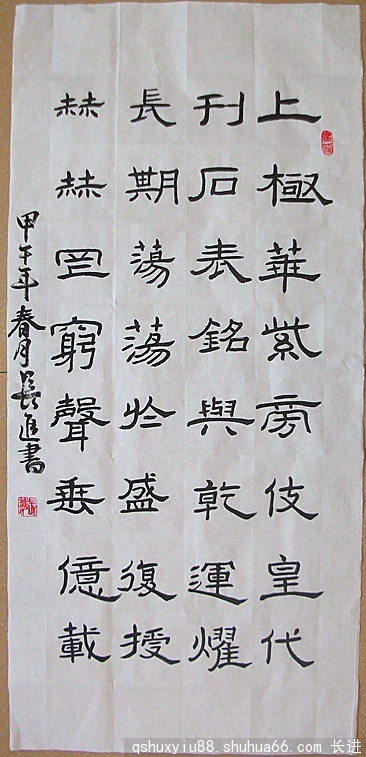 上極華紫旁伎皇代
刊石表銘與乾運燿
長期蕩蕩於盛復授
赫赫罔窮聲垂億載
甲午年春月長進書
qshuxyiu88.shuhua66.com 长进